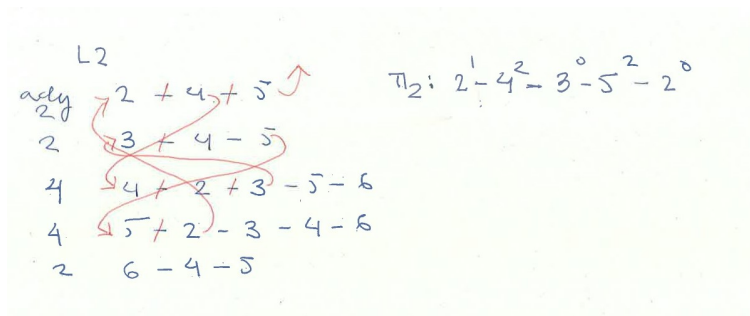 L2
ady 2 + 4 + 5
2
2 3 + 4 - 5
4 4 + 2 + 3 - 5 - 6
4 5 + 2 - 3 - 4 - 6
2 6 - 4 - 5
Π₂: 2¹ - 4² - 3⁰ - 5² - 2⁰